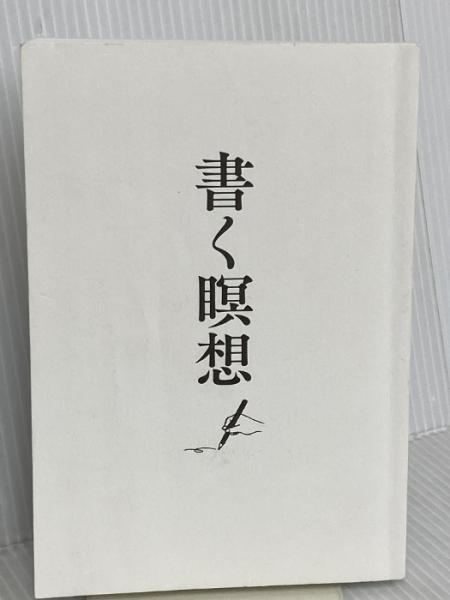 書く瞑想